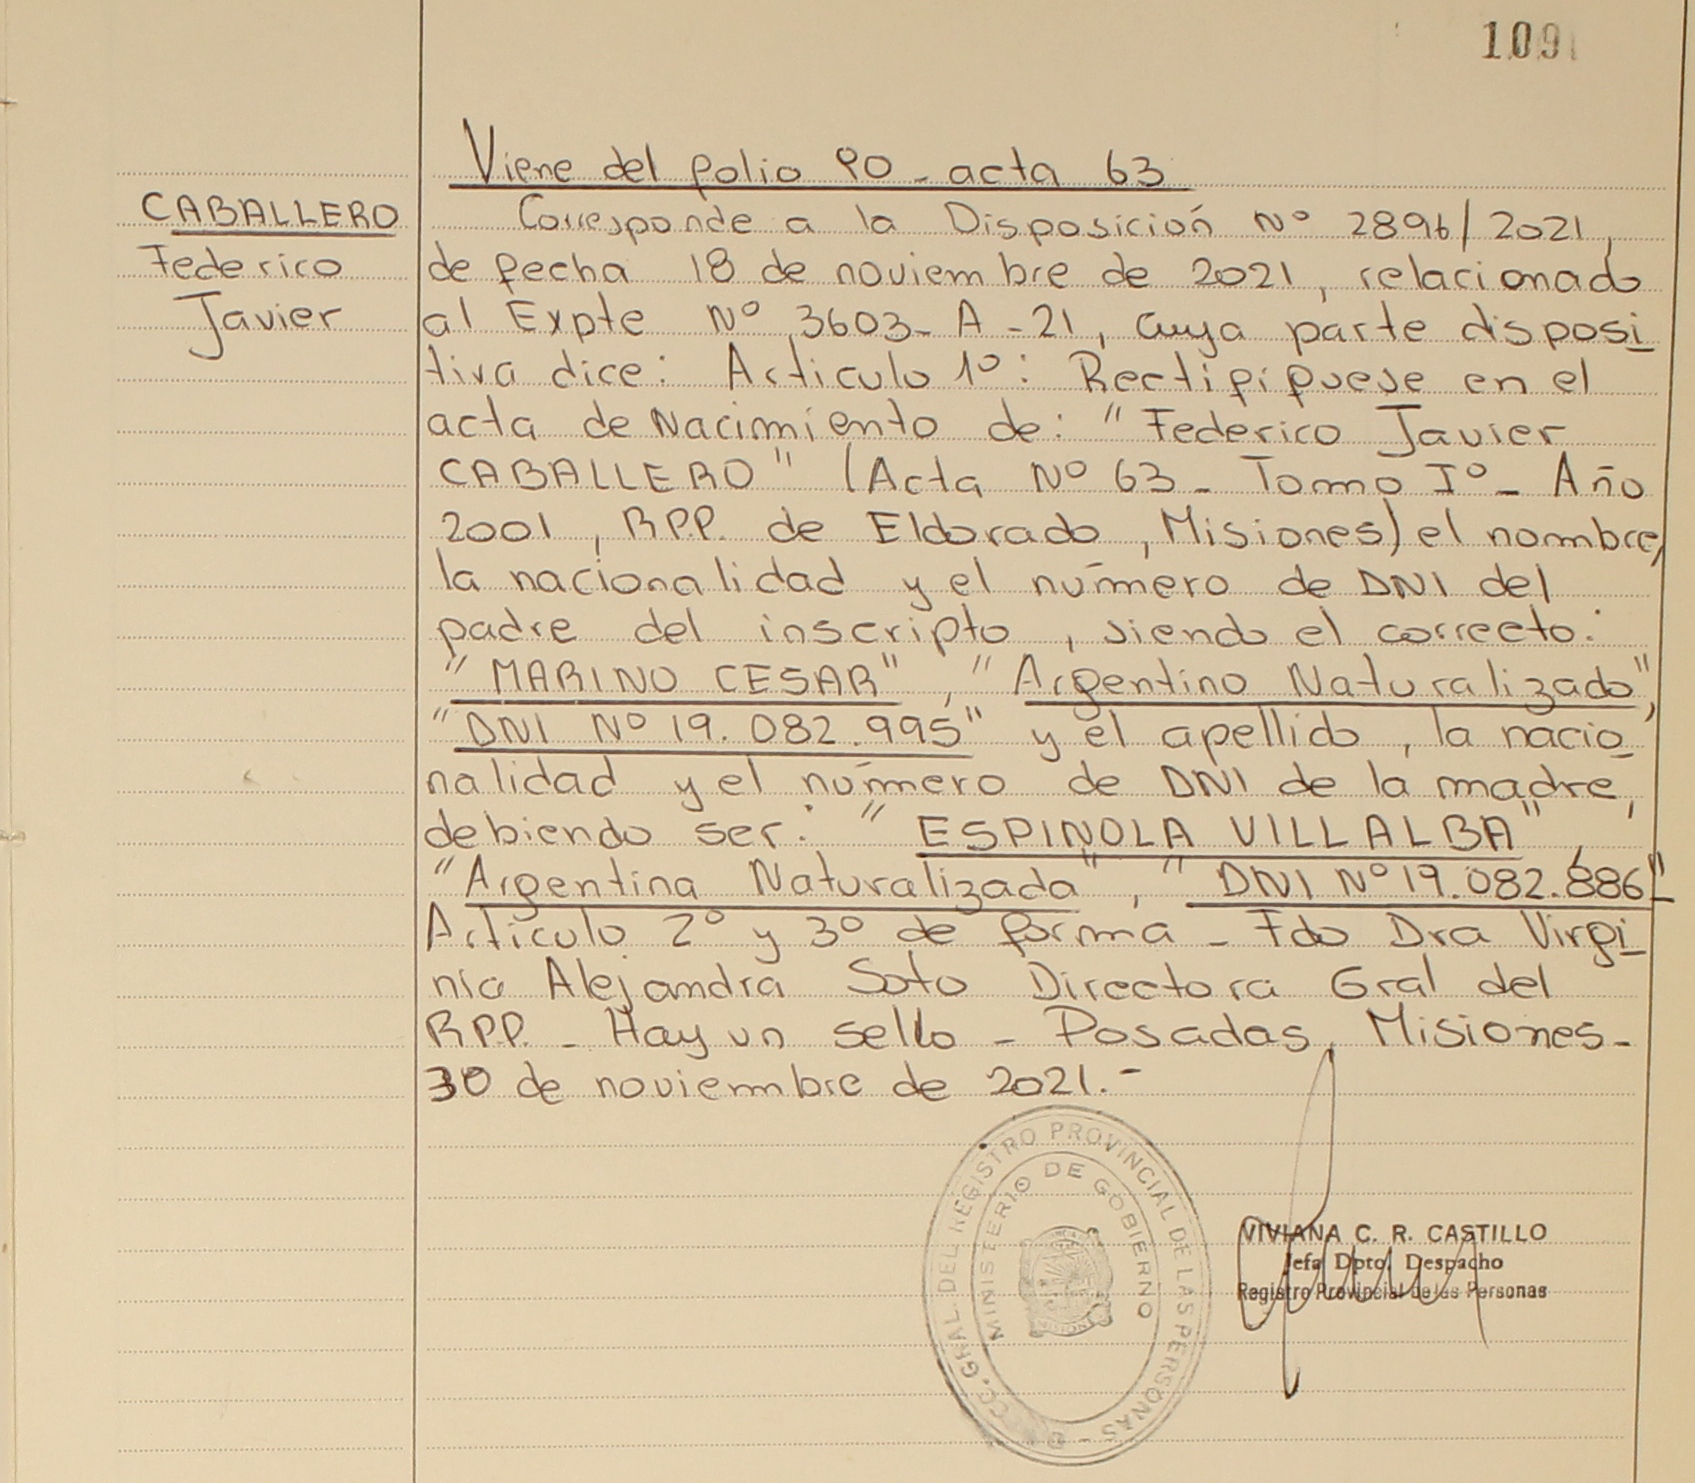 109
Viene del folio 90 - acta 63
CABALLERO
Federico
Javier
Corresponde a la Disposición Nº 2896/2021,
de fecha 18 de noviembre de 2021, relacionado
al Expte Nº 3603- A -21, cuya parte disposi
tiva dice: Articulo 1º: Rectifíquese en el
acta de Nacimiento de: "Federico Javier
CABALLERO" (Acta Nº 63 - Tomo Iº - Año
2001, R.P.P. de Eldorado, Misiones) el nombre,
la nacionalidad y el número de DNI del
padre del inscripto, siendo el correcto:
"MARINO CESAR", "Argentino Naturalizado",
"DNI Nº 19.082.995" y el apellido, la nacio
nalidad y el número de DNI de la madre,
debiendo ser: "ESPINOLA VILLALBA",
"Argentina Naturalizada", "DNI Nº 19.082.886"-
Artículo 2º y 3º de forma - Fdo Dra Virgi
nia Alejandra Soto Directora Gral del
R.P.P. - Hay un sello - Posadas, Misiones-
30 de noviembre de 2021.-
GRAL. DEL REGISTRO PROVINCIAL DE LAS PERSONAS -
MINISTERIO DE GOBIERNO
VIVIANA C. R. CASTILLO
Jefa Dpto. Despacho
Registro Provincial de las Personas